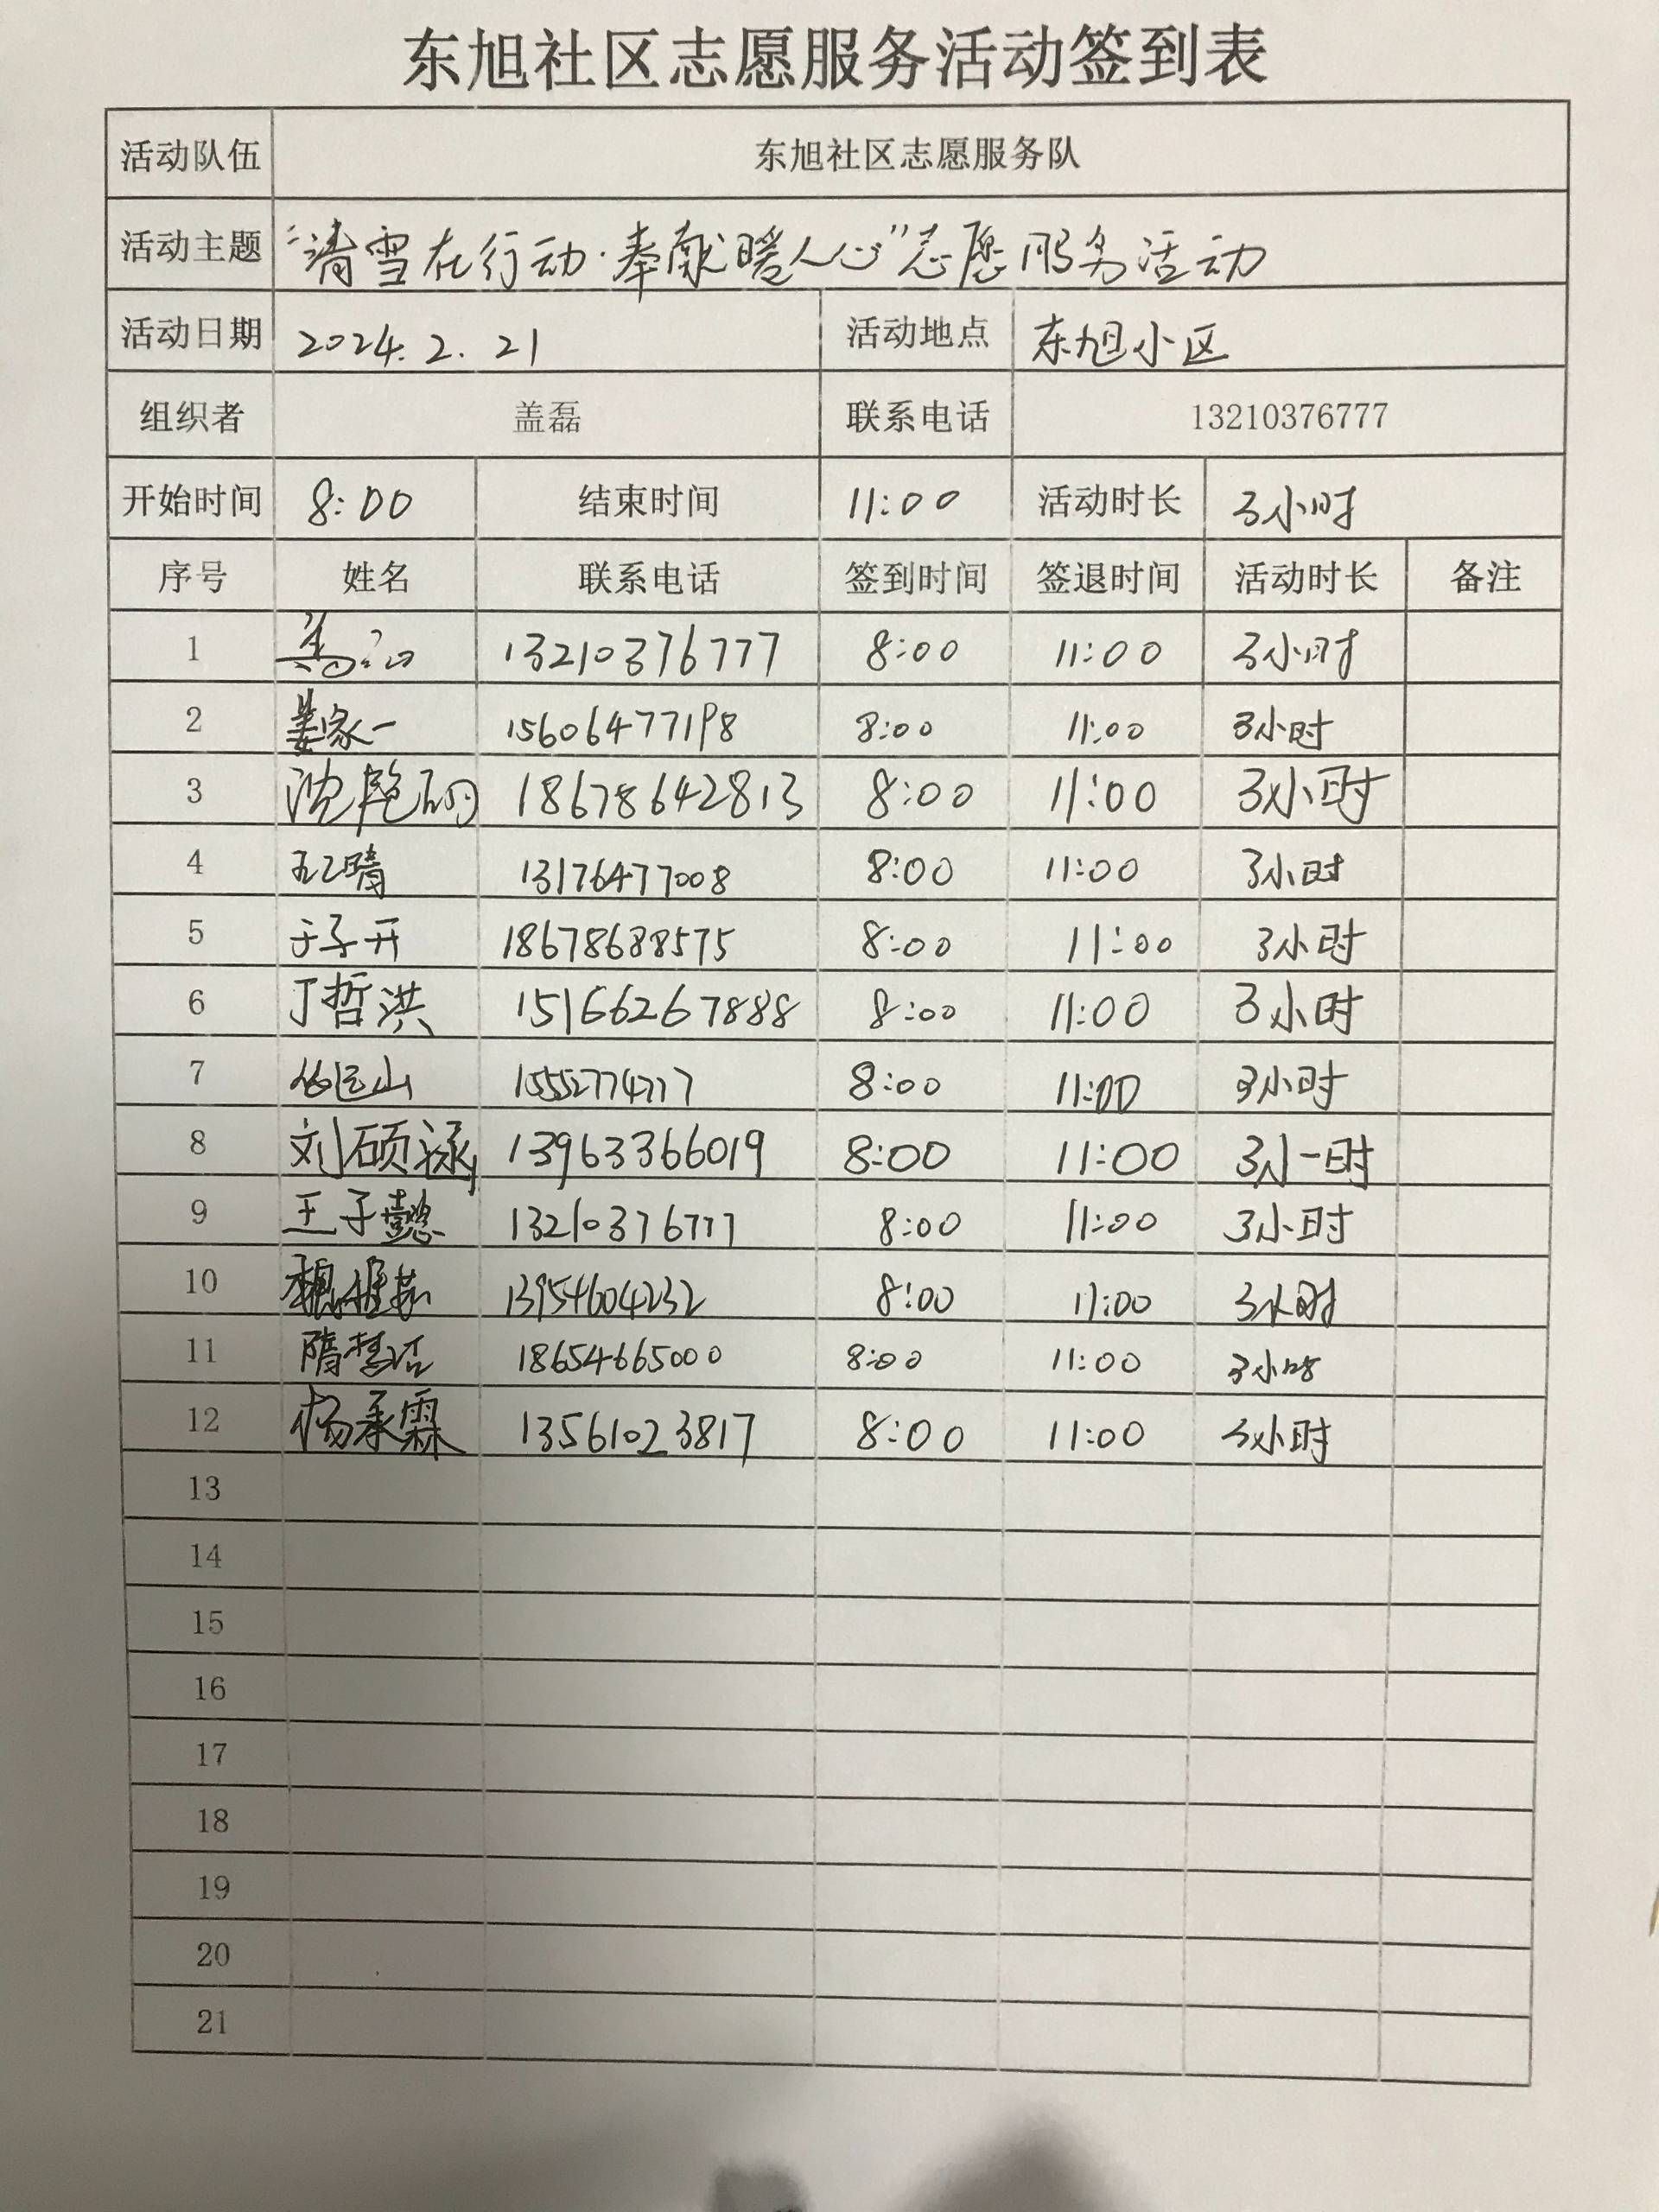 东旭社区志愿服务活动签到表
活动队伍 东旭社区志愿服务队
活动主题 "清雪在行动·奉献暖人心"志愿服务活动
活动日期 2024.2.21 活动地点 东旭小区
组织者 盖磊 联系电话 13210376777
开始时间 8:00 结束时间 11:00 活动时长 3小时
序号 姓名 联系电话 签到时间 签退时间 活动时长 备注
1 盖磊 13210376777 8:00 11:00 3小时
2 姜家一 15606477198 8:00 11:00 3小时
3 沈艳丽 18678642813 8:00 11:00 3小时
4 13176477008 8:00 11:00 3小时
5 于子开 18678688575 8:00 11:00 3小时
6 丁哲洪 15166267888 8:00 11:00 3小时
7 山 15552774777 8:00 11:00 3小时
8 刘硕涵 13963366019 8:00 11:00 3小时
9 王子懿 13210376777 8:00 11:00 3小时
10 13954604232 8:00 11:00 3小时
11 隋 18654665000 8:00 11:00 3小时
12 杨承霖 13561023817 8:00 11:00 3小时
13
14
15
16
17
18
19
20
21